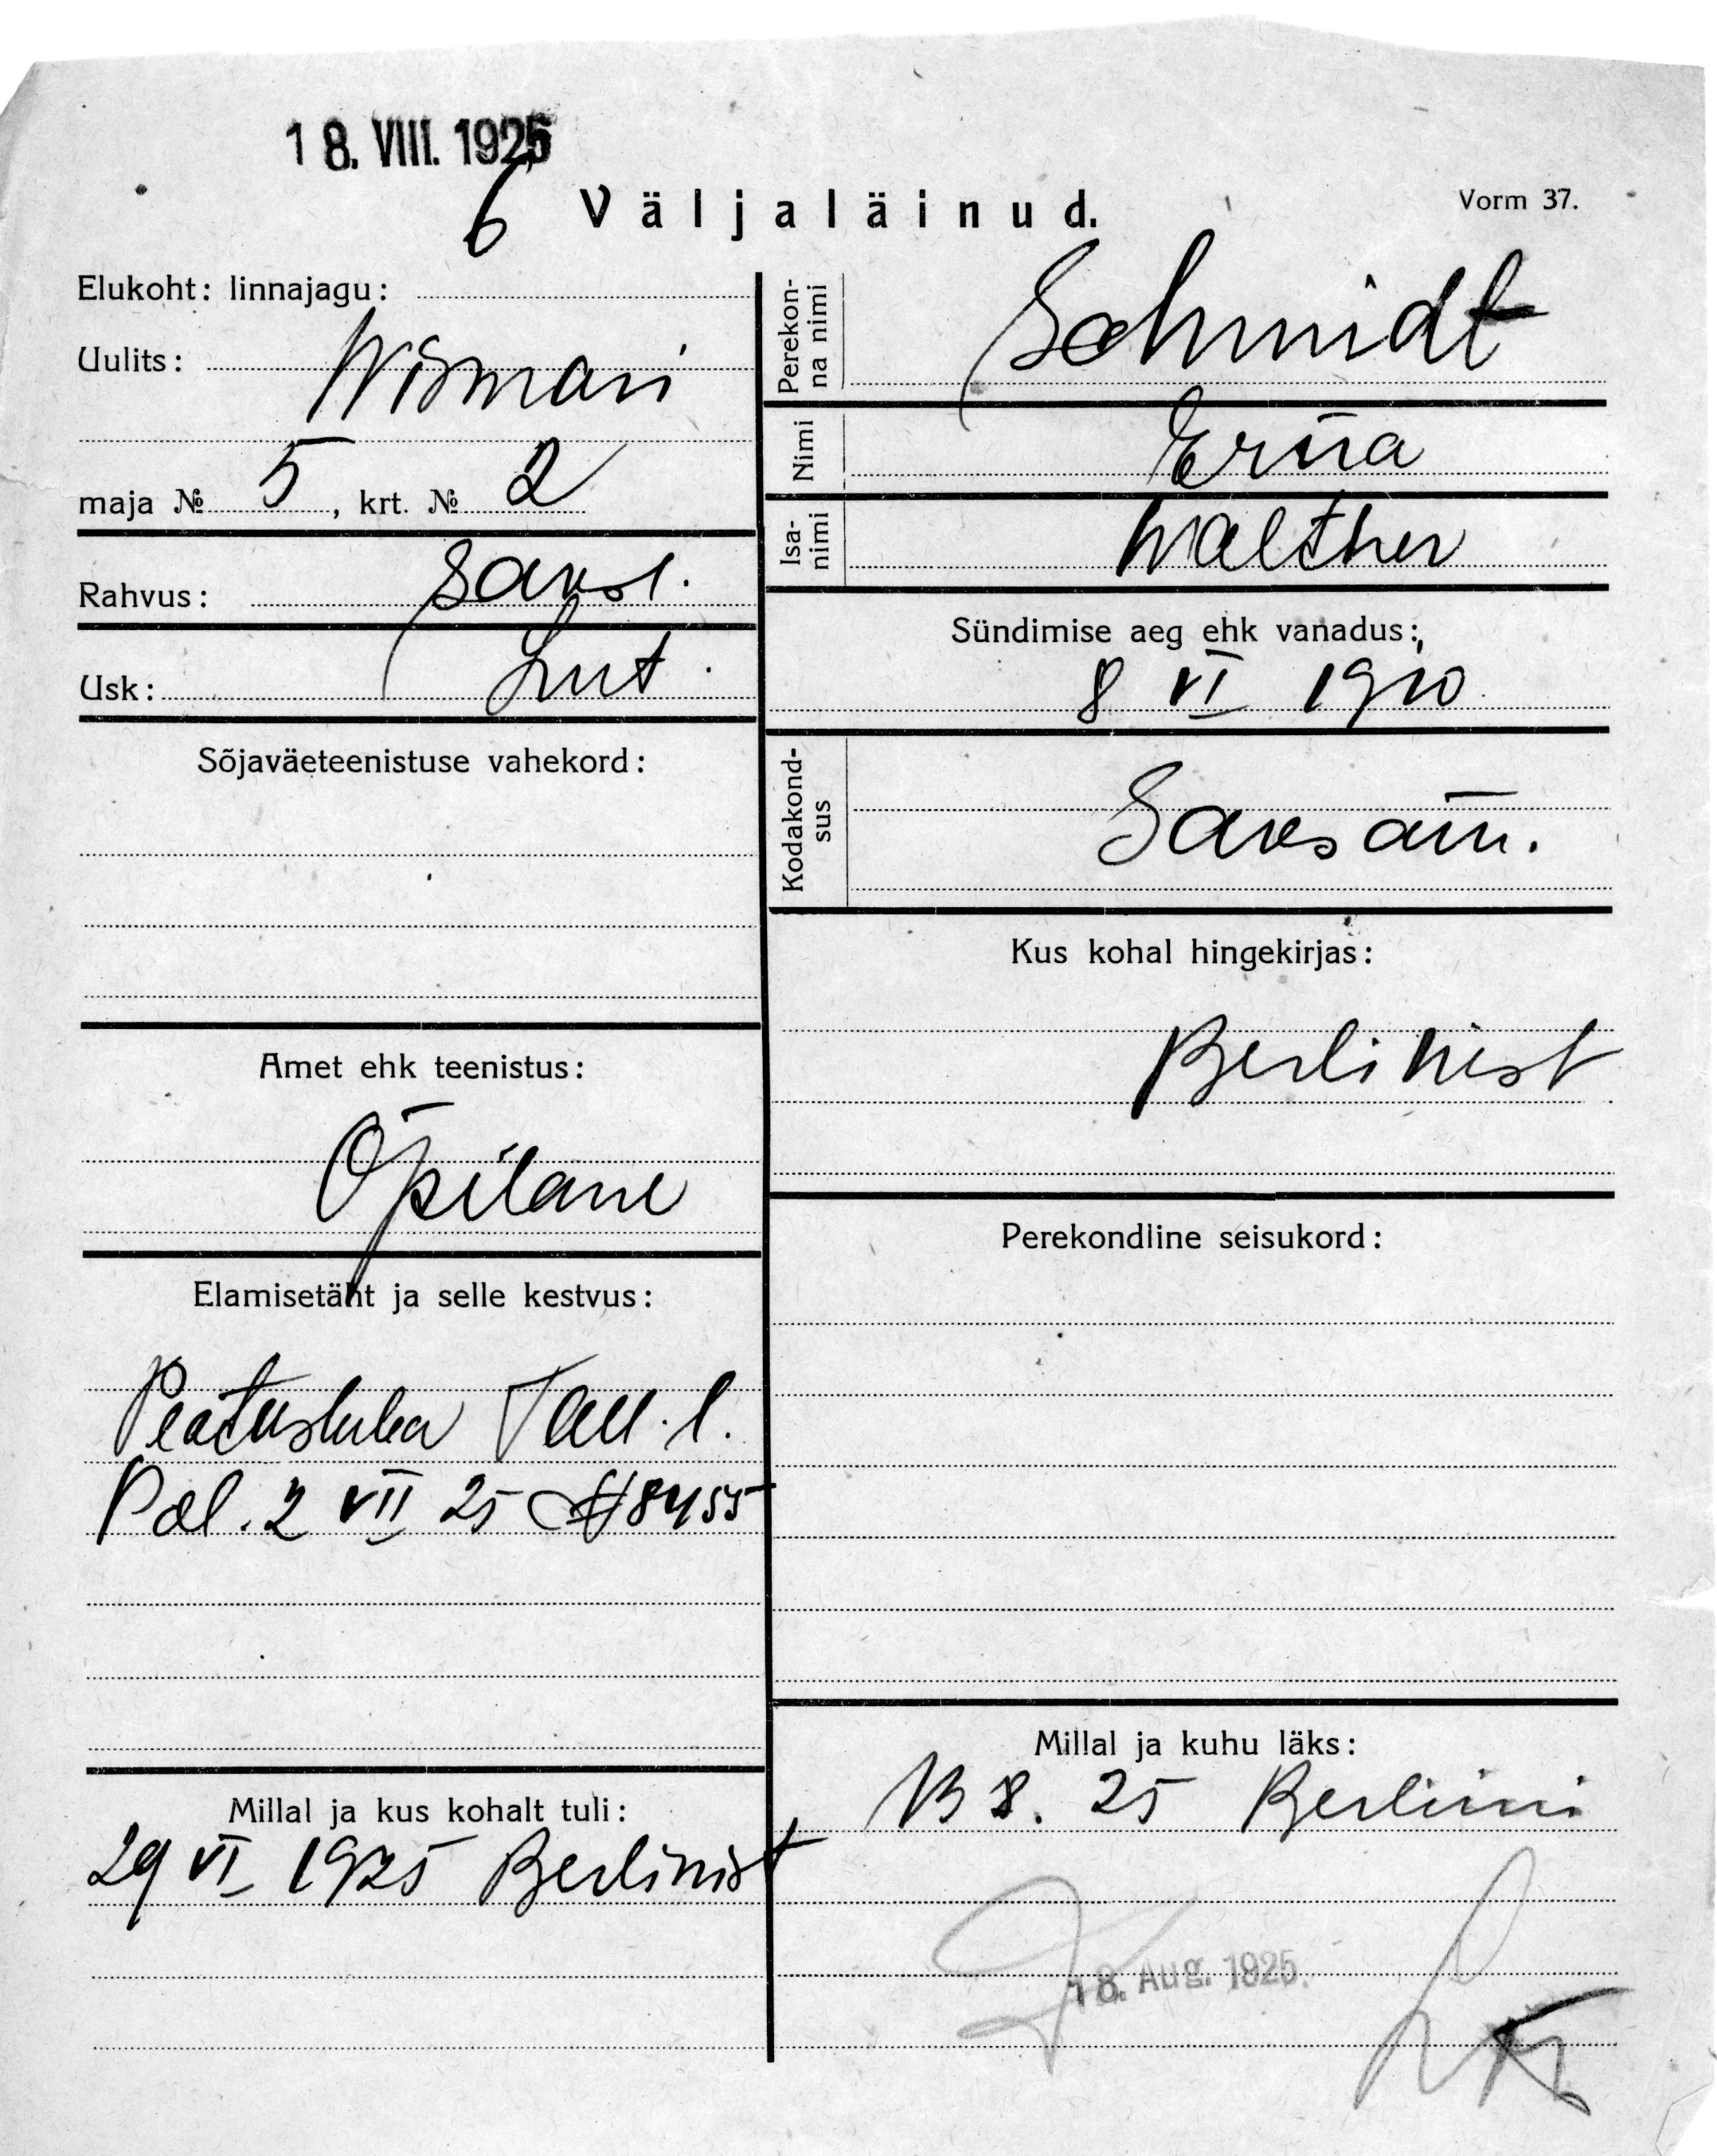 18. VIII. 1925
6
Väljaläinud.
Vorm 37.
Elukoht: linnajagu:
Uulits: Wismari
maja № 5, krt. № 2
Rahvus: Saksl.
Usk: Lut.
Sõjaväeteenistuse vahekord:
Amet ehk teenistus:
Õpilane
Elamisetäht ja selle kestvus:
Peatusluba Tall. l.
Pol. 2 VII 25 № 8455
Millal ja kus kohalt tuli:
29 VI 1925 Berlinist
Perekonna nimi Schmidt
Nimi Erna
Isanimi Walther
Sündimise aeg ehk vanadus:
8 VI 1910
Kodakondsus
Saksam.
Kus kohal hingekirjas:
Berlinist
Perekondline seisukord:
Millal ja kuhu läks:
13 8. 25 Berliini
18. Aug. 1925.